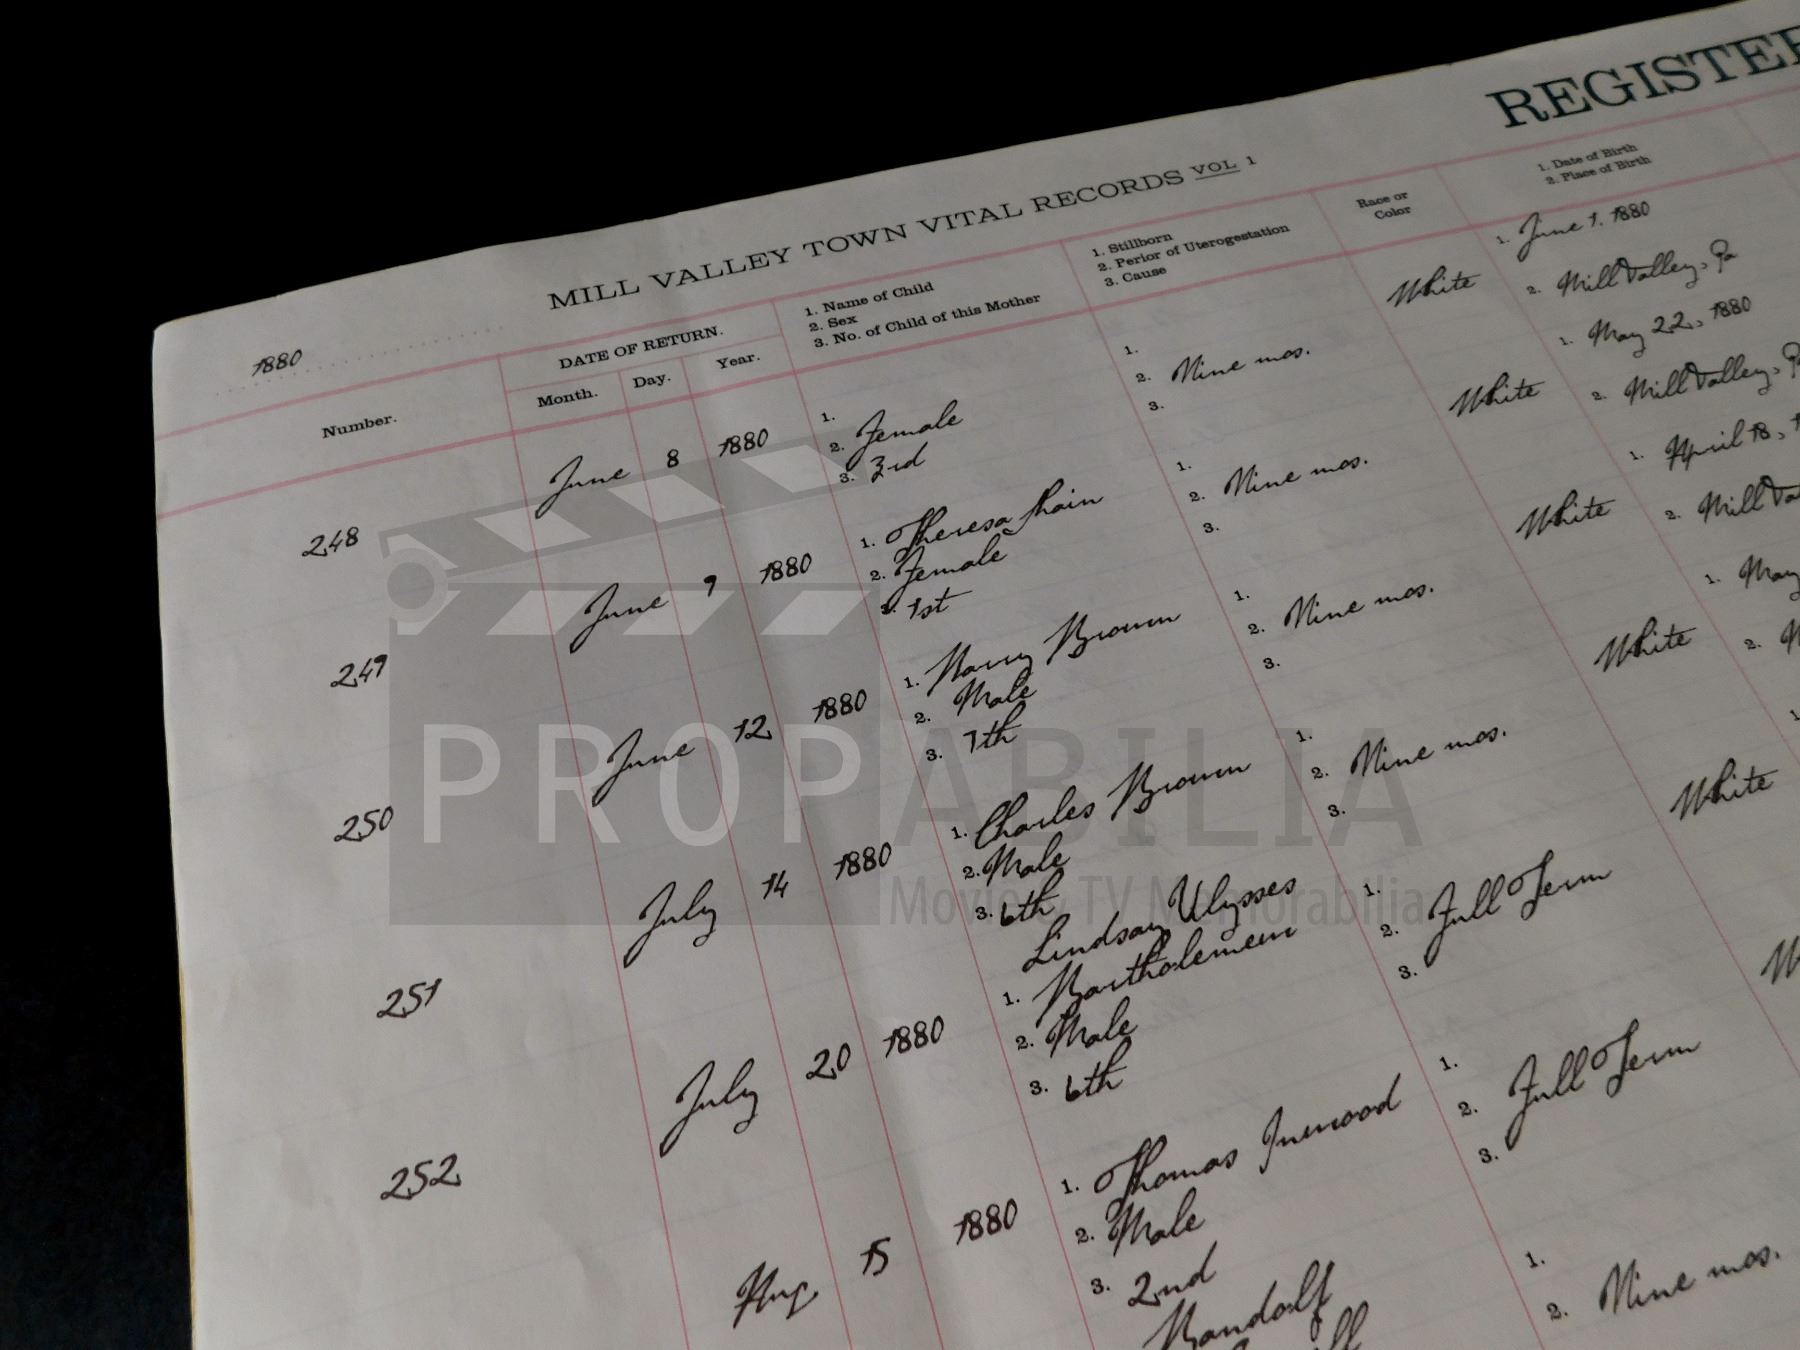 REGISTER
MILL VALLEY TOWN VITAL RECORDS VOL 1
1880
Number.
DATE OF RETURN.
Month. Day. Year.
1. Name of Child
2. Sex
3. No. of Child of this Mother
1. Stillborn
2. Perior of Uterogestation
3. Cause
Race or
Color
1. Date of Birth
2. Place of Birth
248
June 8 1880
1.
2. Female
3. 3rd
1.
2. Nine mos.
3.
White
1. June 1, 1880
2. Mill Valley, Pa
249
June 9 1880
1. Theresa
2. Female
3. 1st
1.
2. Nine mos.
3.
White
1. May 22, 1880
2. Mill Valley,
250
June 12 1880
1. Harry Brown
2. Male
3. 7th
1.
2. Nine mos.
3.
White
1. April 18,
2. Mill
251
July 14 1880
1. Charles Brown
2. Male
3. 6th
1.
2. Nine mos.
3.
White
1. May
2.
252
July 20 1880
Lindsay Ulysses
1. Bartholemew
2. Male
3. 6th
1.
2. Full Term
3.
White
1.
Aug. 15 1880
1. Thomas Inwood
2. Male
3. 2nd
1.
2. Full Term
3.
Randolf
1.
2. Nine mos.
PROPABILIA
Movie & TV Memorabilia